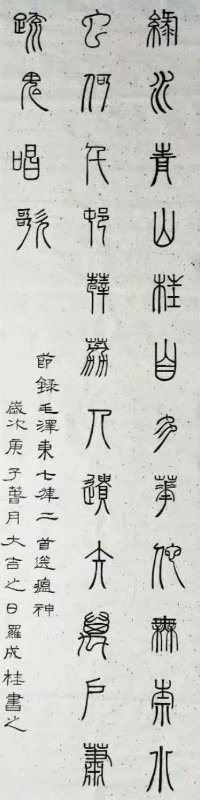 綠水青山枉自多華佗無奈小
虫何千邨薜荔人遺矢萬戶蕭
疏鬼唱歌
節錄毛澤東七律二首送瘟神
歲次庚子月大吉之日羅成桂書之